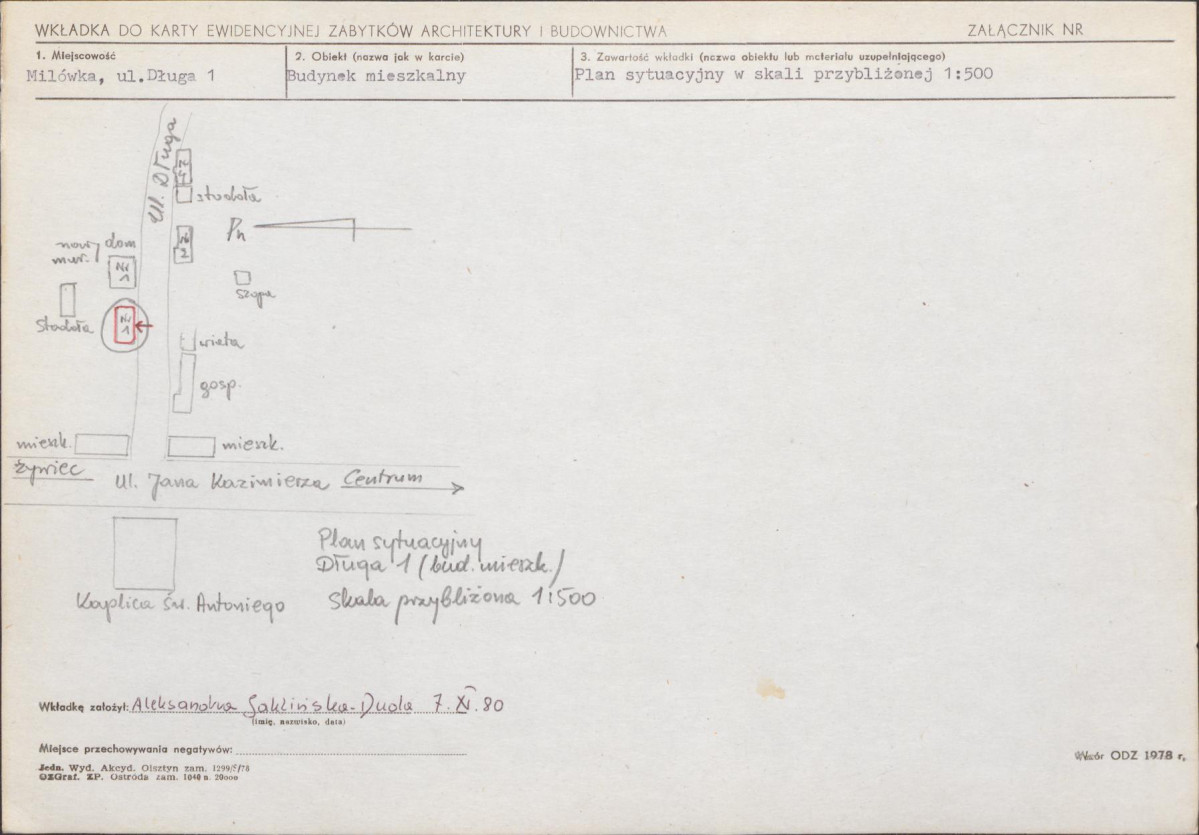 WKŁADKA DO KARTY EWIDENCYJNEJ ZABYTKÓW ARCHITEKTURY I BUDOWNICTWA
ZAŁĄCZNIK NR
1. Miejscowość
Milówka, ul.Długa 1
2. Obiekt (nazwa jak w karcie)
Budynek mieszkalny
3. Zawartość wkładki (nazwa obiektu lub materiału uzupełniającego)
Plan sytuacyjny w skali przybliżonej 1:500
Ul. Długa
stodoła
Pn
Nr 2
nowy dom
mur.
Nr
1
szopa
Stodoła
Nr
1
wiata
gosp.
mieszk.
mieszk.
Żywiec
Ul. Jana Kazimierza
Centrum
Kaplica św. Antoniego
Plan sytuacyjny
Długa 1 (bud. mieszk.)
Skala przybliżona 1:500
Wkładkę założył: Aleksandra 7. XI. 80
(imię, nazwisko, data)
Miejsce przechowywania negatywów:
Jedn. Wyd. Akcyd. Olsztyn zam. 1299/S/78
OZGraf. ZP. Ostróda zam. 1040 n. 20000
Wzór ODZ 1978 r.